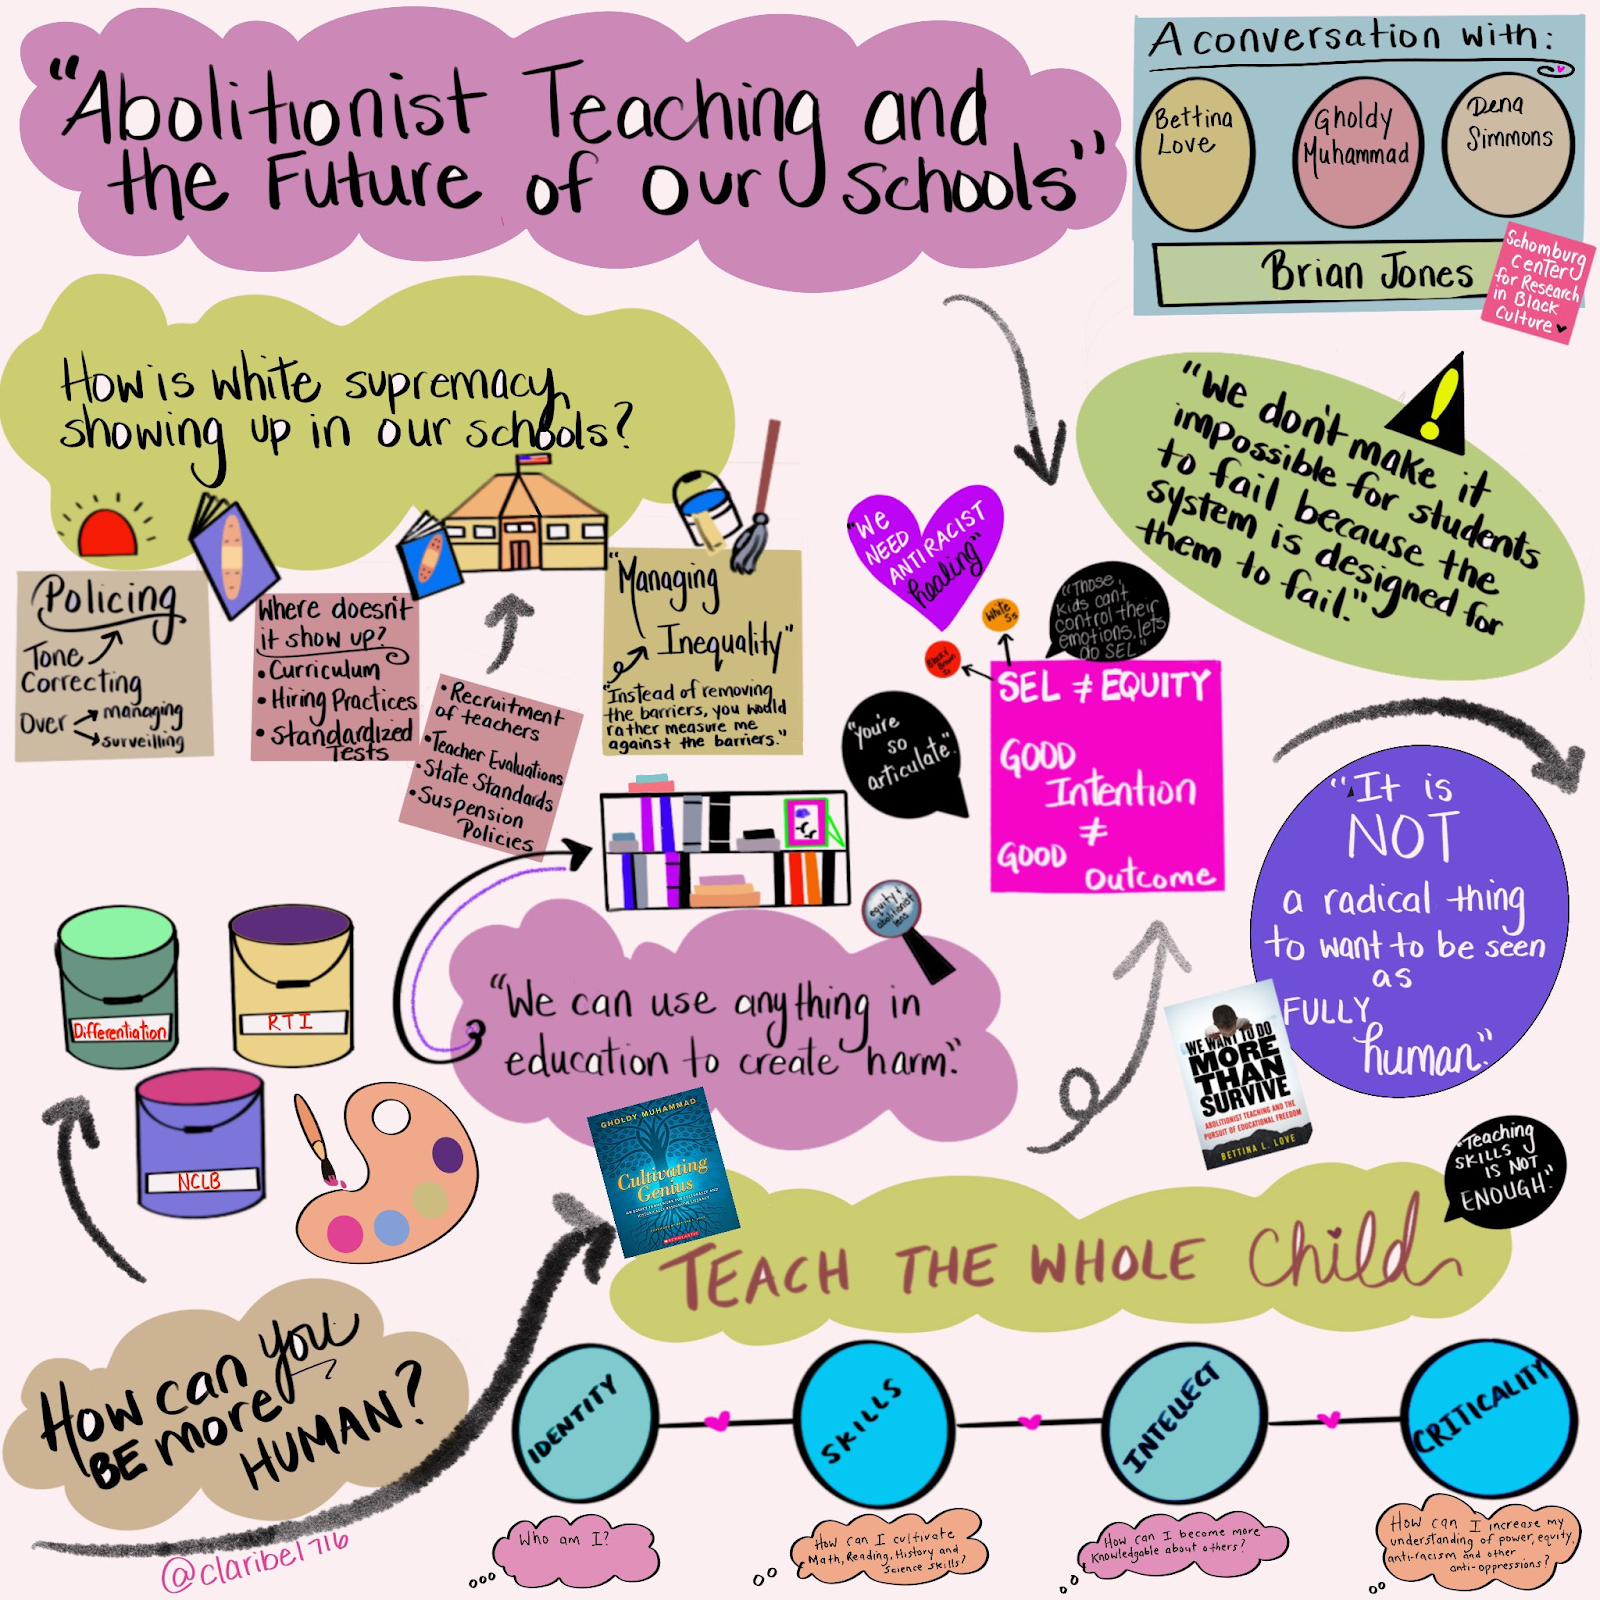 "Abolitionist Teaching and
the Future of our Schools"
A conversation with:
Bettina
Love
Gholdy
Muhammad
Dena
Simmons
Brian Jones
Schomburg
Center
for Research
in Black
Culture
How is white supremacy
showing up in our schools?
Policing
Tone
Correcting
Over
managing
surveilling
Where doesn't
it show up?
• Curriculum
• Hiring Practices
• Standardized
Tests
• Recruitment
of teachers
• Teacher Evaluations
• State Standards
• Suspension
Policies
"Managing
Inequality"
"Instead of removing
the barriers, you would
rather measure me
against the barriers."
"We
NEED
ANTIRACIST
healing"
White
Ss
Black &
Brown
Ss
"Those
kids can't
control their
emotions, lets
do SEL"
SEL ≠ EQUITY
GOOD
Intention
≠
GOOD
Outcome
"you're
so
articulate."
"We don't make it
impossible for students
to fail because the
system is designed for
them to fail."
"It is
NOT
a radical thing
to want to be seen
as
FULLY
human."
WE WANT TO DO
MORE
THAN
SURVIVE
ABOLITIONIST TEACHING AND THE
PURSUIT OF EDUCATIONAL FREEDOM
BETTINA L. LOVE
equity &
abolitionist
lens
"We can use anything in
education to create harm."
Differentiation
RTI
NCLB
GHOLDY MUHAMMAD
Cultivating
Genius
AN EQUITY FRAMEWORK FOR CULTURALLY AND
HISTORICALLY RESPONSIVE LITERACY
SCHOLASTIC
"Teaching
SKILLS
IS NOT
ENOUGH."
TEACH THE WHOLE Child
How can you
BE more
HUMAN?
IDENTITY
SKILLS
INTELLECT
CRITICALITY
Who am I?
How can I cultivate
Math, Reading, History and
Science skills?
How can I become more
Knowledgable about others?
How can I increase my
understanding of power, equity,
anti-racism and other
anti-oppressions?
@claribel716